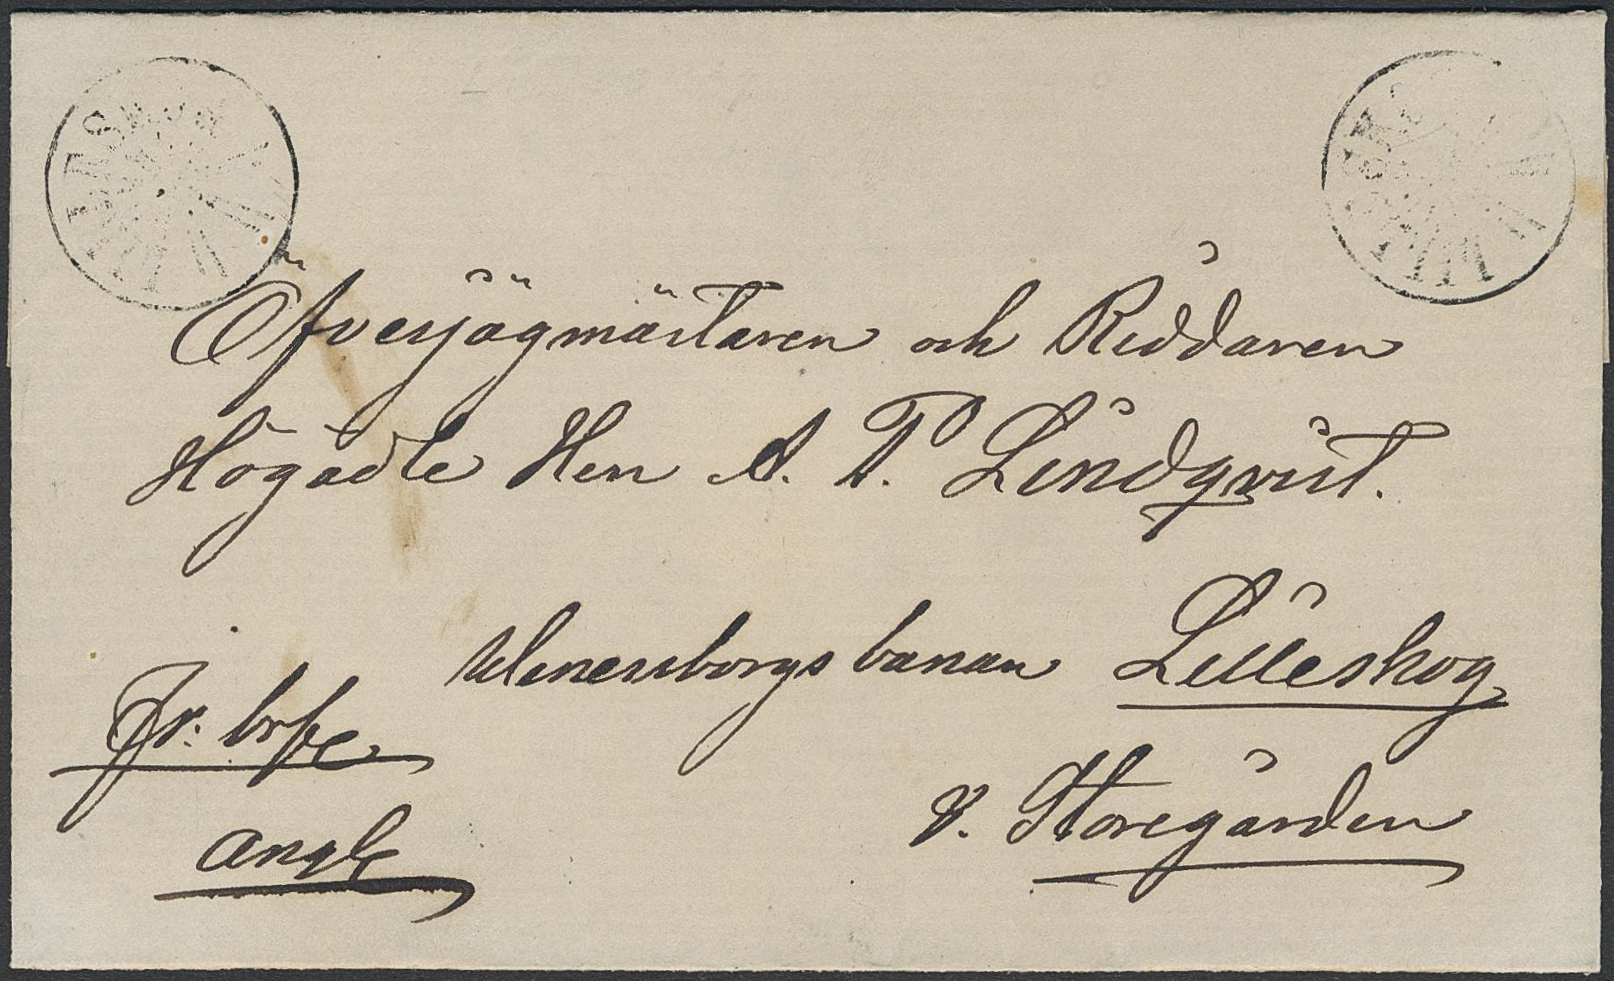 Öfverjägmästaren och Riddaren
Högädle Herr A. P. Lindqvist.
Wenersborgsbanan Lilleskog
v. Storegården
Fr. brfve
angl